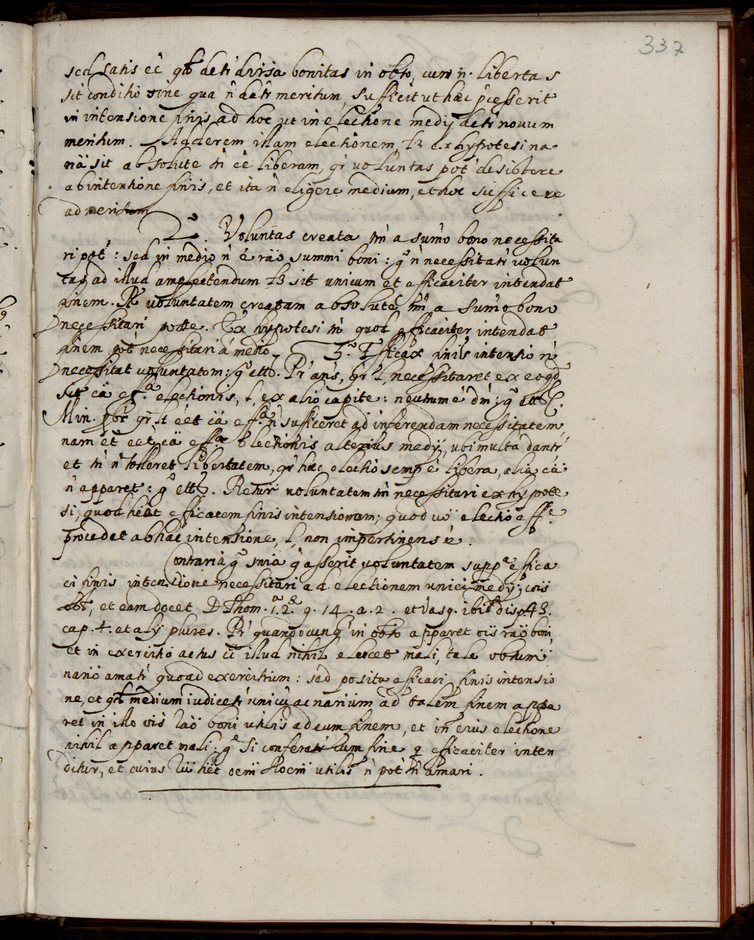 337
sed satis eē qđ deti diversa bonitas in obto, cum n. libertas
sit conditio sine qua n̄ deti meritum, sufficit ut hæc p̄cesserit
in intensione finis ad hoc ut in electione medij deti novum
meritum. Adderem illam electionem ex hypotesi na
riā sit absolute tñ eē liberam, qr voluntas pot desistere
ab intentione finis, et ita n̄ eligere medium, et hoc sufficere
ad meritum
2º. Voluntas creata tñ a sumo bono necessita
ri pot: sed in medio n̄ ē rāo summi boni: gº n necessitati volun
tas ad illud amplectendum sit unicum et efficaciter intendat
finem. Rº voluntatem creatam absolute tñ a sumo bono
necessitari posse. Ex hypotesi tñ quod efficaciter intendat
finem pot necessitari a medio. 3º. Efficax finis intensio n̄
necessitat voluntatem: gº etc. Pr ans, qr l, necessitaret ex eo qd
sit cā effª electionis, l, ex alio capite: neutrum dñ: gº etc.
Min. pbr qr lt eēt cā effª n̄ sufficeret ad inferendam necessitatem
nam et eēt cā effª electionis alterius medij, ubi multa dantr
et tñ n̄ tolleret libertatem, qr hæc electio semp ē libera, alia cā
n̄ apparet: gº etc. Retur voluntatem tñ necessitari ex hypote
si, quod heāt efficacem finis intensionem; quod vō electio effª
procedat ab hac intensione, l, non impertinens ē.
Contraria gº snīa q̄ asserit voluntatem suppª effica
ci finis intensione necessitari ad electionem unici medij; cōis
est, et eam docet D. Thom. 1.2. q. 14. a. 2. et Vasq. ibi disp. 43.
cap. 4. et alij plures. Pr quandocunq in obto apparet ois rāo boni,
et in exercitio actus cā illud nihil elucet mali, tale obtum
nario amati quoad exercitium: sed posita efficaci finis intensio
ne, et qđ medium iudicetr unicū ac narium ad talem finem appa
ret in illo ois rāo boni utilis ad eum finem, et in eius electione
nihil apparet mali: gº si conferatr cum fine q efficaciter inten
ditur, et cuius hēt oem rōem utilis n̄ pot n̄ amari.